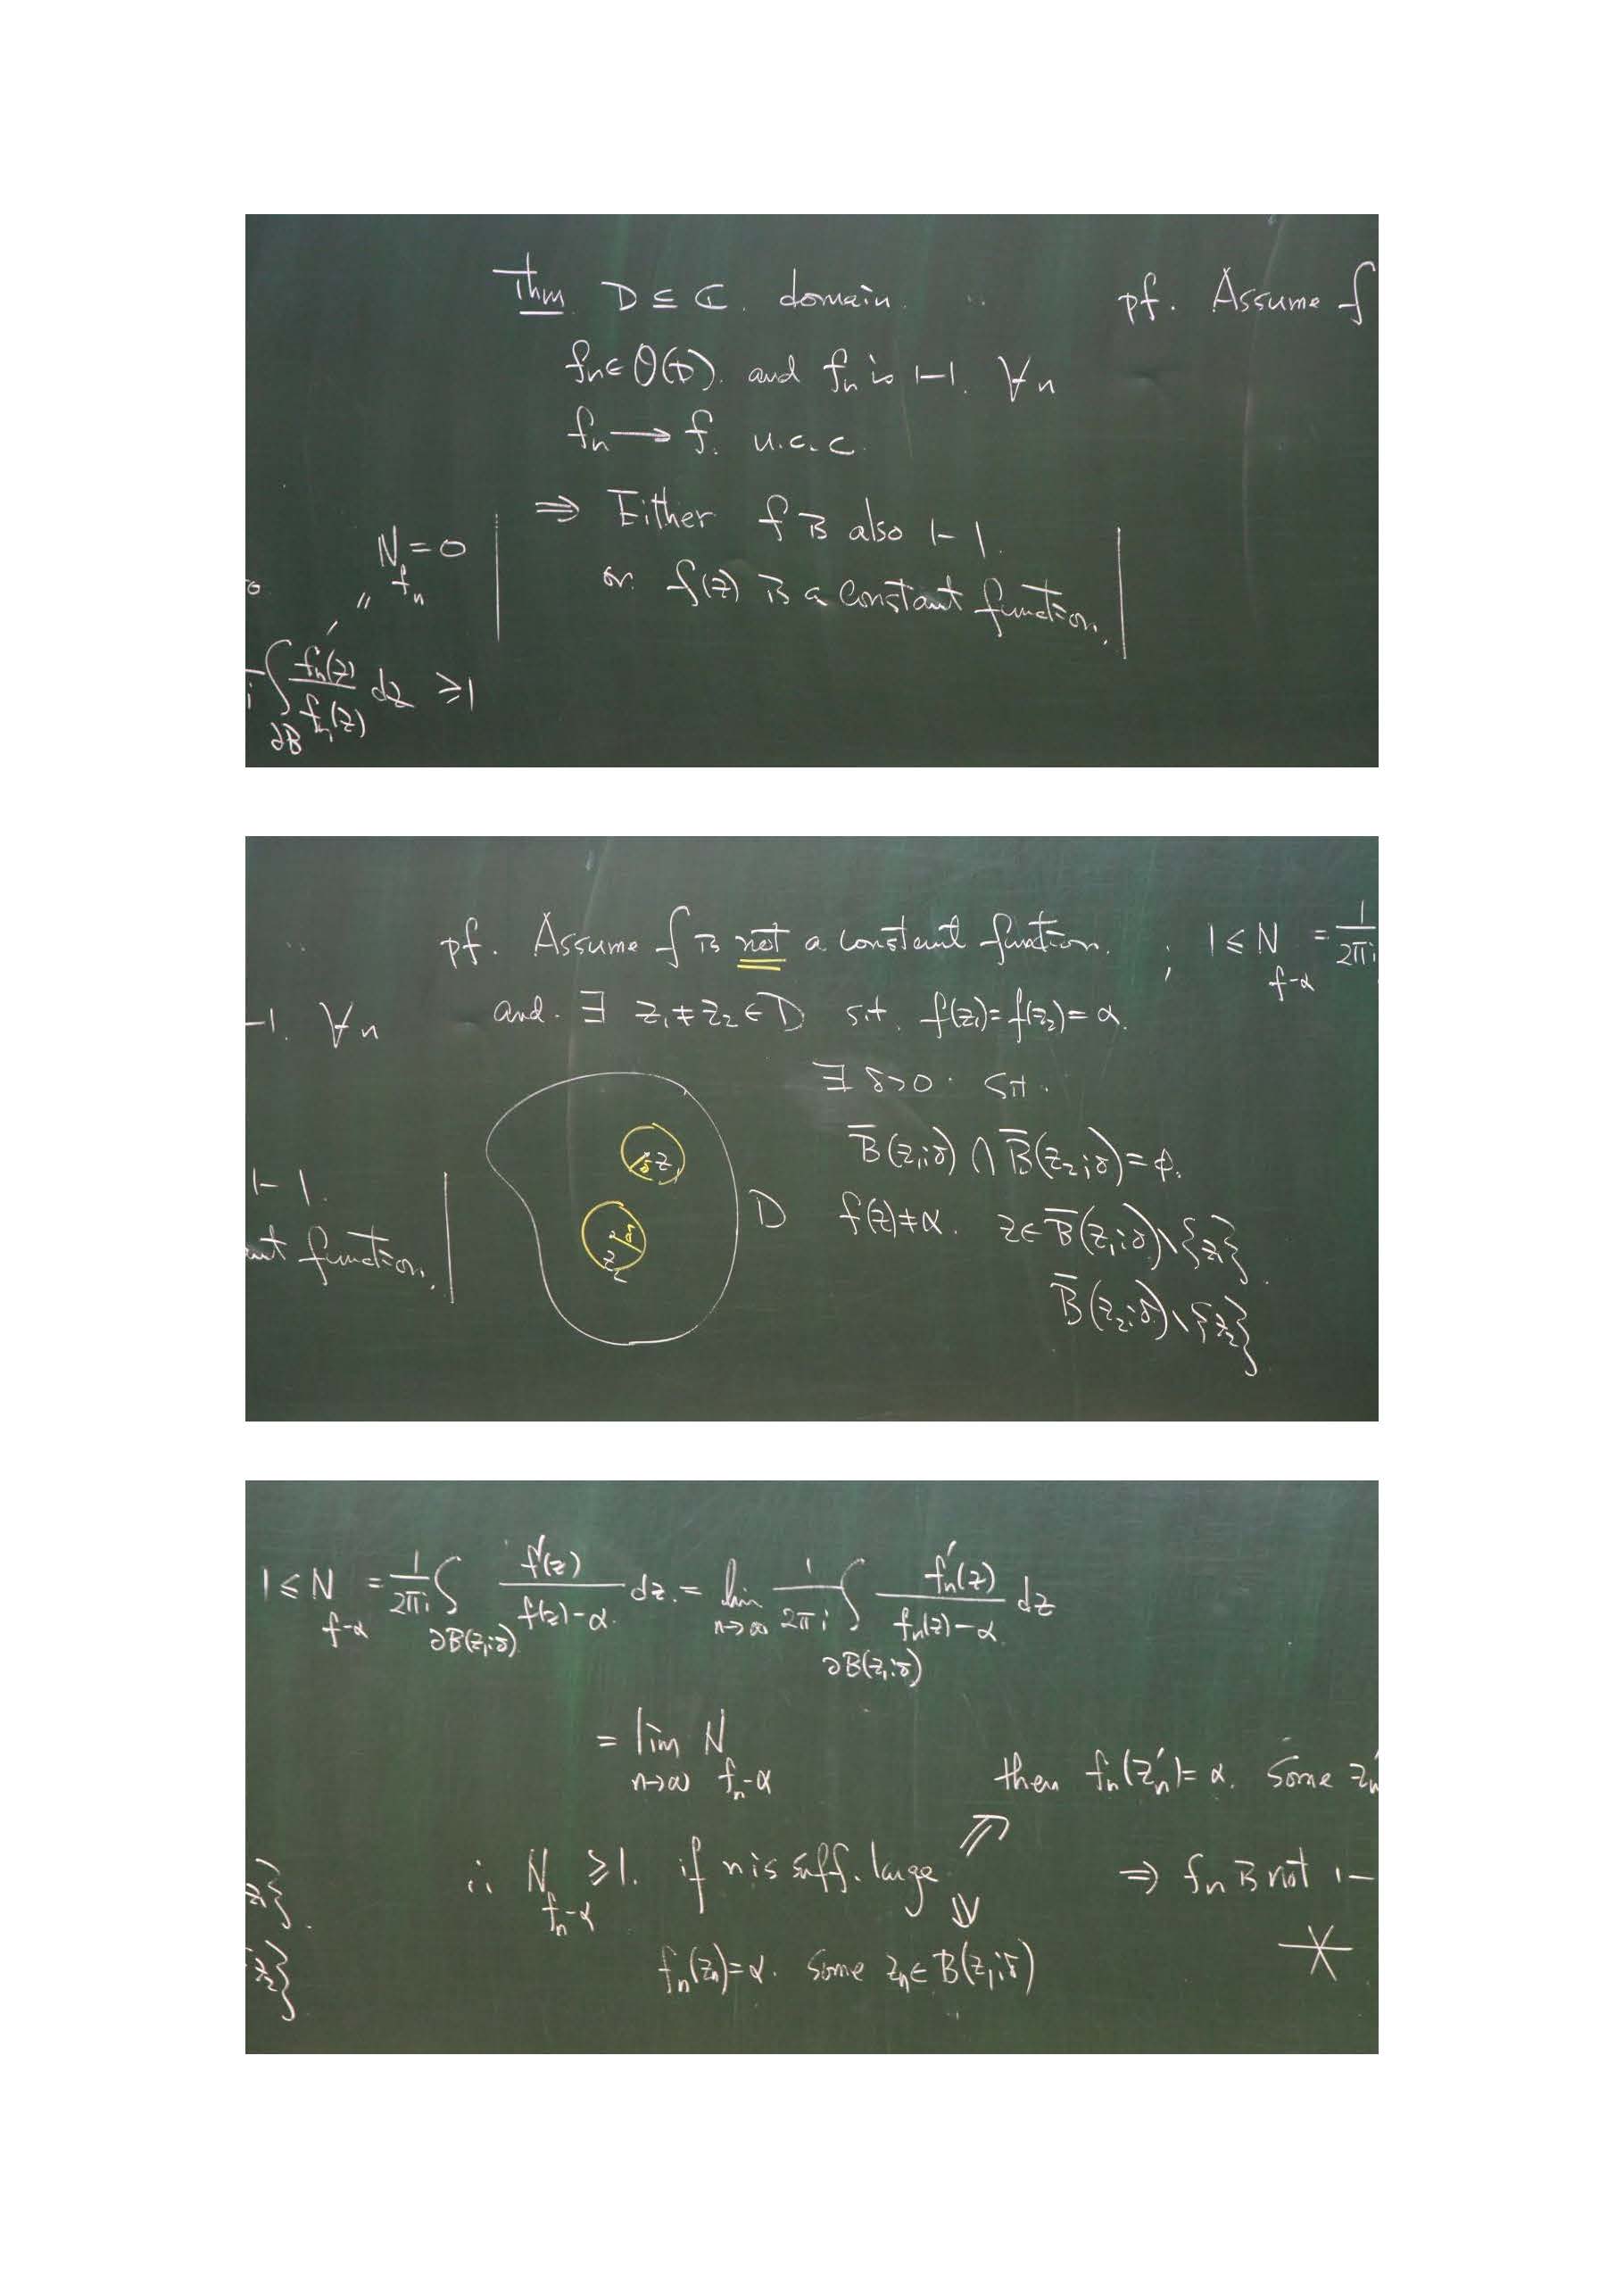 Thm. D ⊆ ℂ. domain.
pf. Assume f
fn ∈ O(D). and fn is 1-1. ∀n
fn → f. u.c.c.
⇒ Either f is also 1-1.
or. f(z) is a constant function.
N_fn = 0
"
i ∫_∂B fn'(z)/fn(z) dz ≥ 1
pf. Assume f is not a constant function.
; 1 ≤ N_f-α = 1/2πi
and. ∃ z₁ ≠ z₂ ∈ D s.t. f(z₁) = f(z₂) = α.
-1. ∀n
∃ δ > 0. s.t.
B̅(z₁;δ) ∩ B̅(z₂;δ) = φ.
f(z) ≠ α. z ∈ B̅(z₁;δ)\{z₁}.
B̅(z₂;δ)\{z₂}
δ z₁
δ z₂
D
1-1.
ant function.
1 ≤ N_f-α = 1/2πi ∫_∂B(z₁;δ) f'(z)/f(z)-α. dz. = lim_n→∞ 1/2πi ∫_∂B(z₁;δ) fn'(z)/fn(z)-α. dz
= lim_n→∞ N_fn-α
then fn(zn') = α. Some zn'
∴ N_fn-α ≥ 1. if n is suff. large. ⇗
⇓
⇒ fn is not 1-
fn(zn) = α. Some zn ∈ B(z₁;δ)
z₁}.
z₂}
※